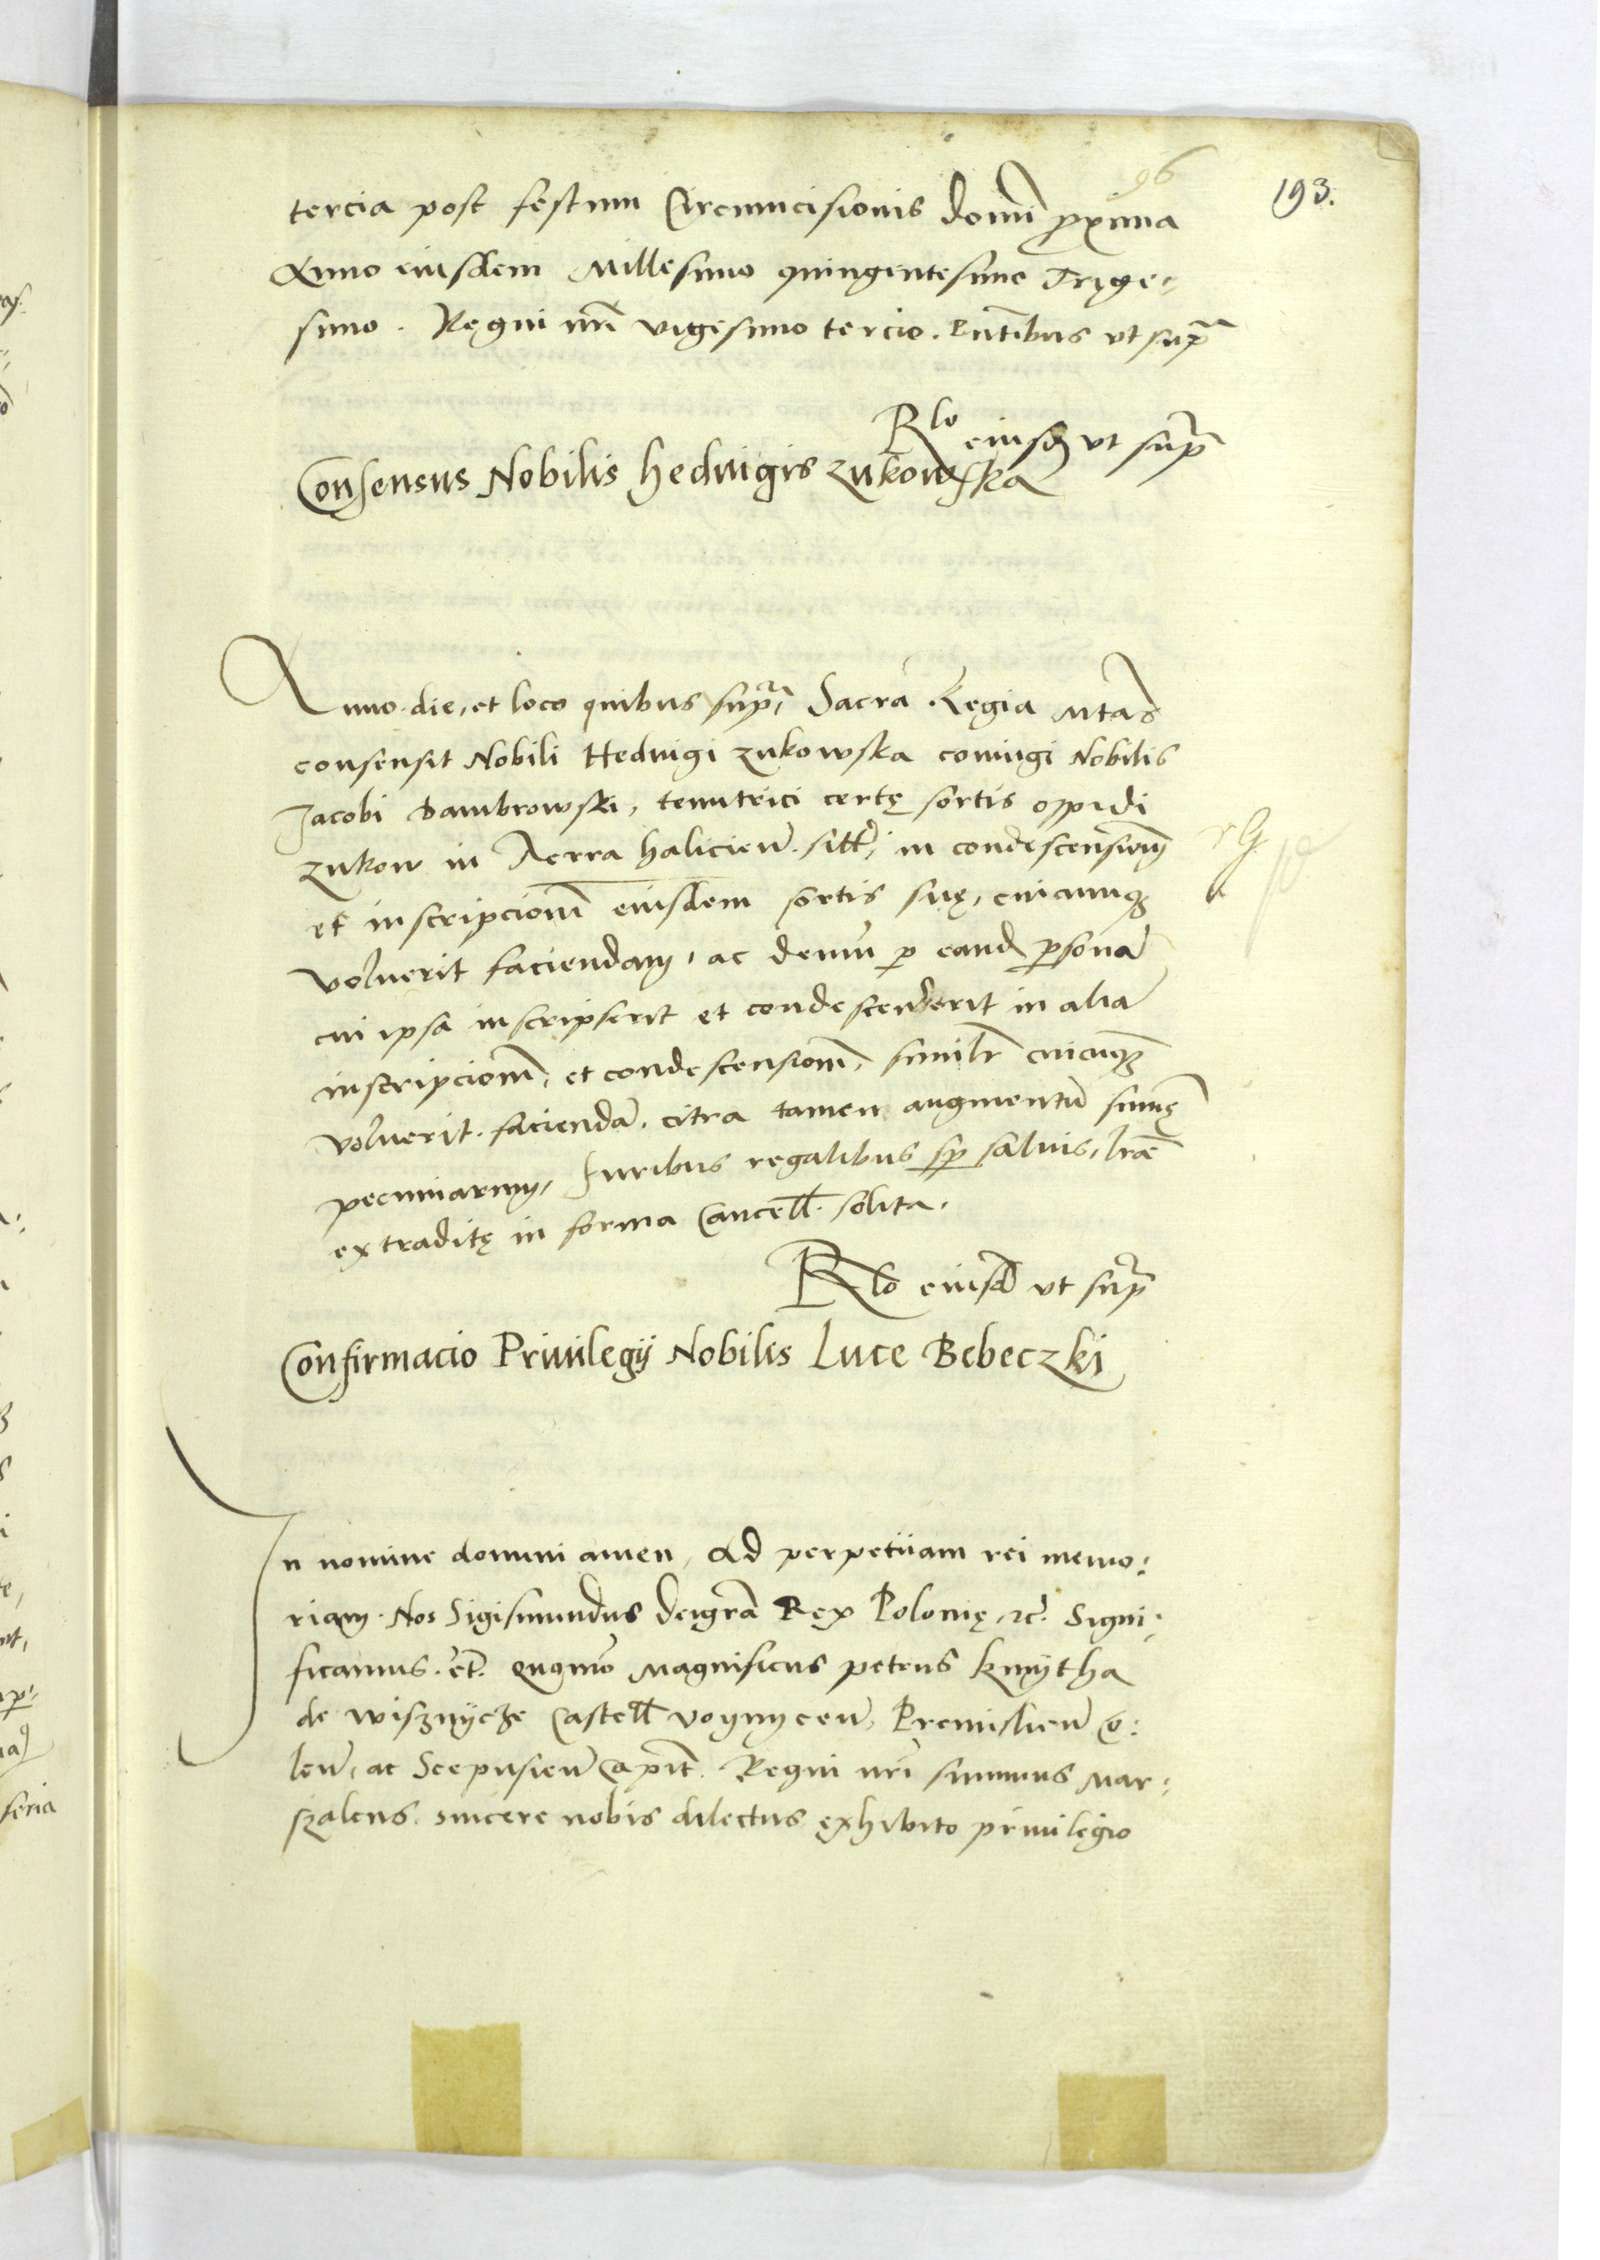 96
193.
tercia post festum Circumcisionis domī proxima
Anno eiusdem Millesimo quingentesimo Trige,
simo. Regni nrī vigesimo tercio. Pntībus vt supra
Rlo eiusd vt supra
Consensus Nobilis Hedvigis Zukowska
Anno die, et loco quibus supra, Sacra Regia Mtas
consensit Nobili Hedvigi Zukowska coniugi Nobilis
Jacobi Dambrowski, tenutrici certę sortis oppidi
Zukow in Terra halicień. sitt, in condescensionem
et inscripcionē eiusdem sortis suę, cuicumq3
voluerit faciendam, ac demū per eand personā
cui ipsa inscripserit et condescenderit in aliā
inscripcionē, et condescensionē, similr cuicuq3
voluerit. faciendā. citra tamen augmentū sumę
pecuniarum, Juribus regalibus sp saluis, lrae
extraditę in forma Cancell. solita.
Rlo eiusd vt supra
Confirmacio Priuilegij Nobilis Luce Bebeczki
In nomine domini amen, Ad perpetuam rei memo:
riam. Nos Sigismundus dei gra Rex Polonię, rc. Signi:
ficamus. etc. quomō Magnificus petrus kmytha
de wisznycze Castell voynyceń, Premislień Co:
leń, ac Scepusień Capit. Regni nrī summus Mar:
szalcus. sincere nobis dilectus exhibito priuilegio